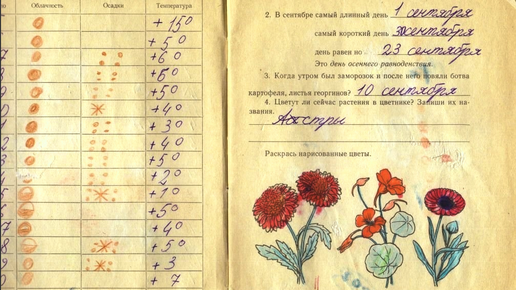 Облачность Осадки Температура
+ 15°
+ 5°
+ 6°
+ 6°
+ 5°
+ 4°
+ 3°
+ 4°
+ 5°
+ 2°
+ 1°
+ 5°
+ 4°
+ 5°
+ 3
+ 7
2. В сентябре самый длинный день 1 сентября
самый короткий день 30 сентября
день равен но . 23 сентября
Это день осеннего равноденствия.
3. Когда утром был заморозок и после него поняли ботва
картофеля, листья георгинов? 10 сентября
4. Цветут ли сейчас растения в цветнике? Запиши их на-
звания. Астры
Раскрась нарисованные цветы.